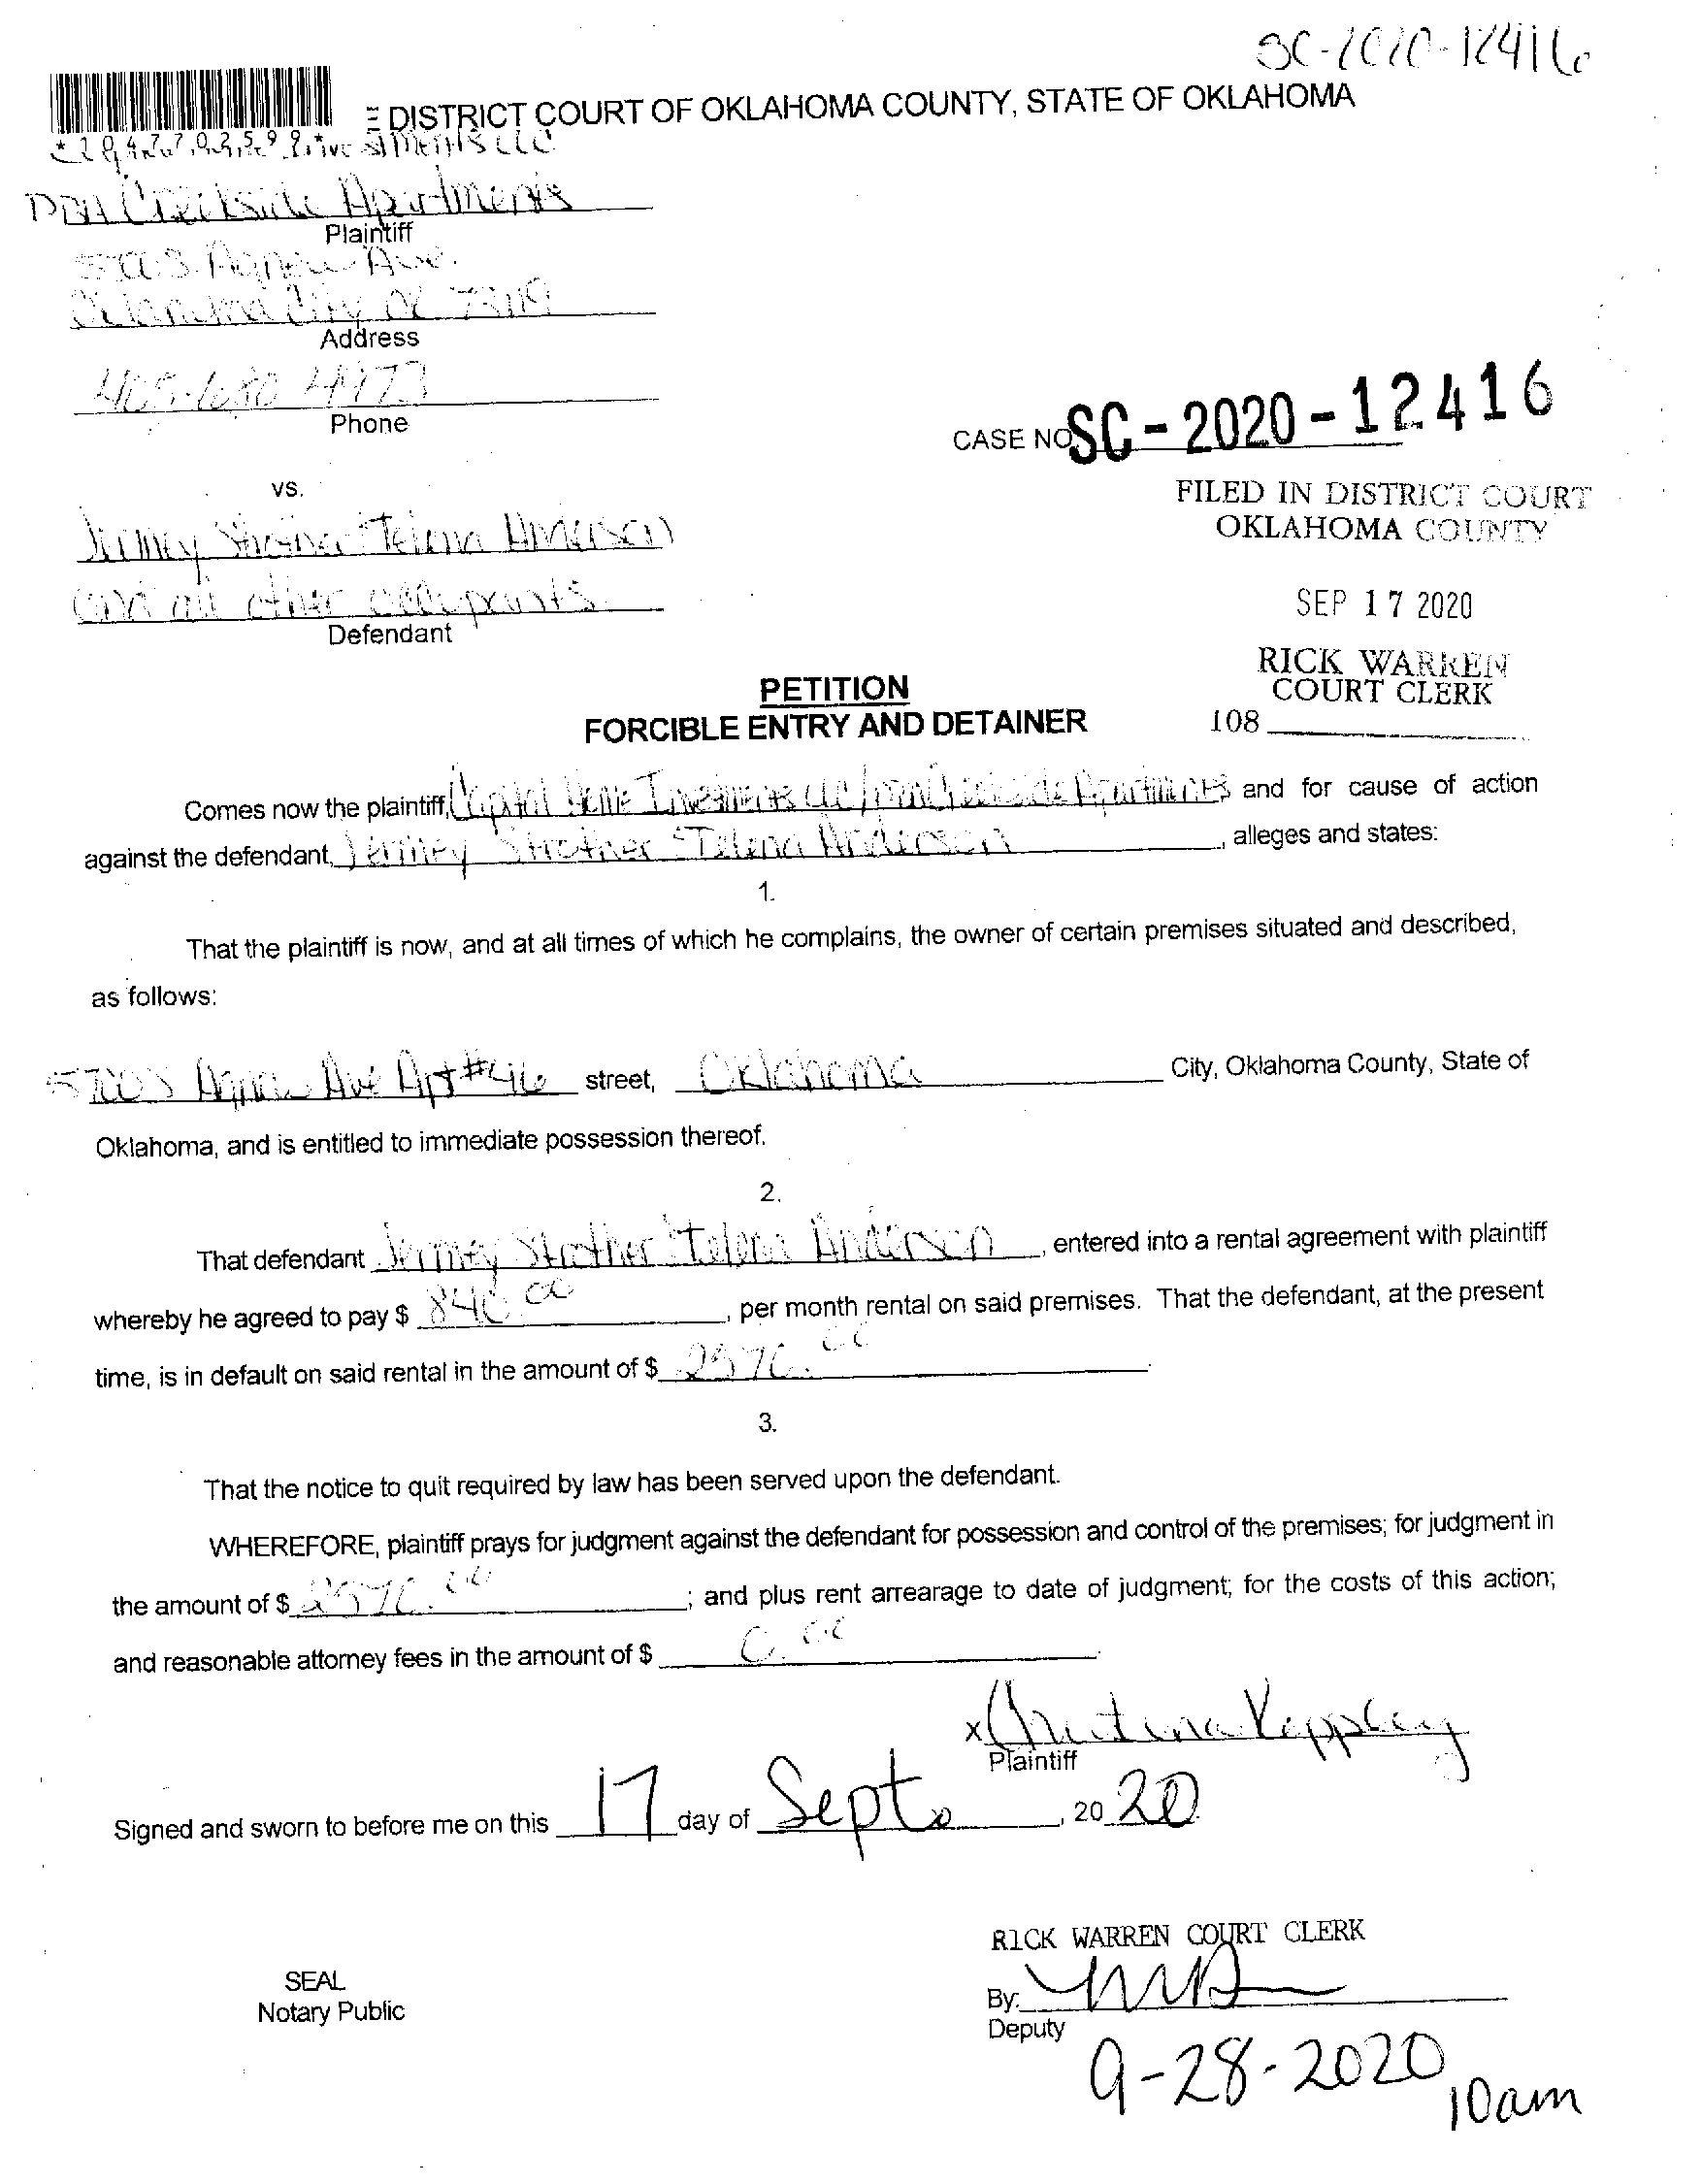 SC-2020-12416
DISTRICT COURT OF OKLAHOMA COUNTY, STATE OF OKLAHOMA
*1047702599*
DBA Creekside Apartments
Plaintiff
S. Agnew Ave.
Oklahoma City OK 73119
Address
405-680 4973
Phone
CASE NO. SC-2020-12416
vs.
FILED IN DISTRICT COURT
OKLAHOMA COUNTY
Jermey Strother Telena Anderson
and all other occupants
Defendant
SEP 17 2020
RICK WARREN
COURT CLERK
108
PETITION
FORCIBLE ENTRY AND DETAINER
Comes now the plaintiff, Capital Home Investments LLC Creekside Apartments and for cause of action
against the defendant, Jermey Strother Telena Anderson, alleges and states:
1.
That the plaintiff is now, and at all times of which he complains, the owner of certain premises situated and described,
as follows:
S Agnew Ave Apt #46 street, Oklahoma City, Oklahoma County, State of
Oklahoma, and is entitled to immediate possession thereof.
2.
That defendant Jermey Strother Telena Anderson, entered into a rental agreement with plaintiff
whereby he agreed to pay $ 840.00, per month rental on said premises. That the defendant, at the present
time, is in default on said rental in the amount of $ 2570.00.
3.
That the notice to quit required by law has been served upon the defendant.
WHEREFORE, plaintiff prays for judgment against the defendant for possession and control of the premises; for judgment in
the amount of $ 2570.00; and plus rent arrearage to date of judgment; for the costs of this action;
and reasonable attorney fees in the amount of $ 0.00.
x Christina Keppley
Plaintiff
Signed and sworn to before me on this 17 day of Sept., 2020
RICK WARREN COURT CLERK
SEAL
Notary Public
By:
Deputy
9-28-2020
10am